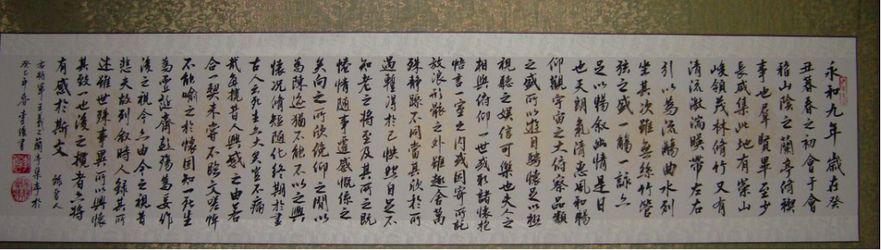 永和九年歲在癸
丑暮春之初會于會
稽山陰之蘭亭脩禊
事也羣賢畢至少
長咸集此地有崇山
峻領茂林脩竹又有
清流激湍暎帶左右
引以為流觴曲水列
坐其次雖無絲竹管
弦之盛一觴一詠亦
足以暢叙幽情是日
也天朗氣清惠風和暢
仰觀宇宙之大俯察品類
之盛所以遊目騁懷足以極
視聽之娛信可樂也夫人之
相與俯仰一世或取諸懷抱
悟言一室之内或因寄所託
放浪形骸之外雖趣舍萬
殊靜躁不同當其欣於所
遇蹔得於己怏然自足不
知老之將至及其所之既
惓情隨事遷感慨係之
矣向之所欣俛仰之閒以
為陳迹猶不能不以之興
懷况脩短隨化終期於盡
古人云死生亦大矣豈不痛
哉每攬昔人興感之由若
合一契未嘗不臨文嗟悼
不能喻之於懷固知一死生
為虛誕齊彭殤為妄作
後之視今亦由今之視昔
悲夫故列叙時人錄其所
述雖世殊事異所以興懷
其致一也後之攬者亦將
有感於斯文
右將軍王羲之蘭亭集序於
癸巳年春